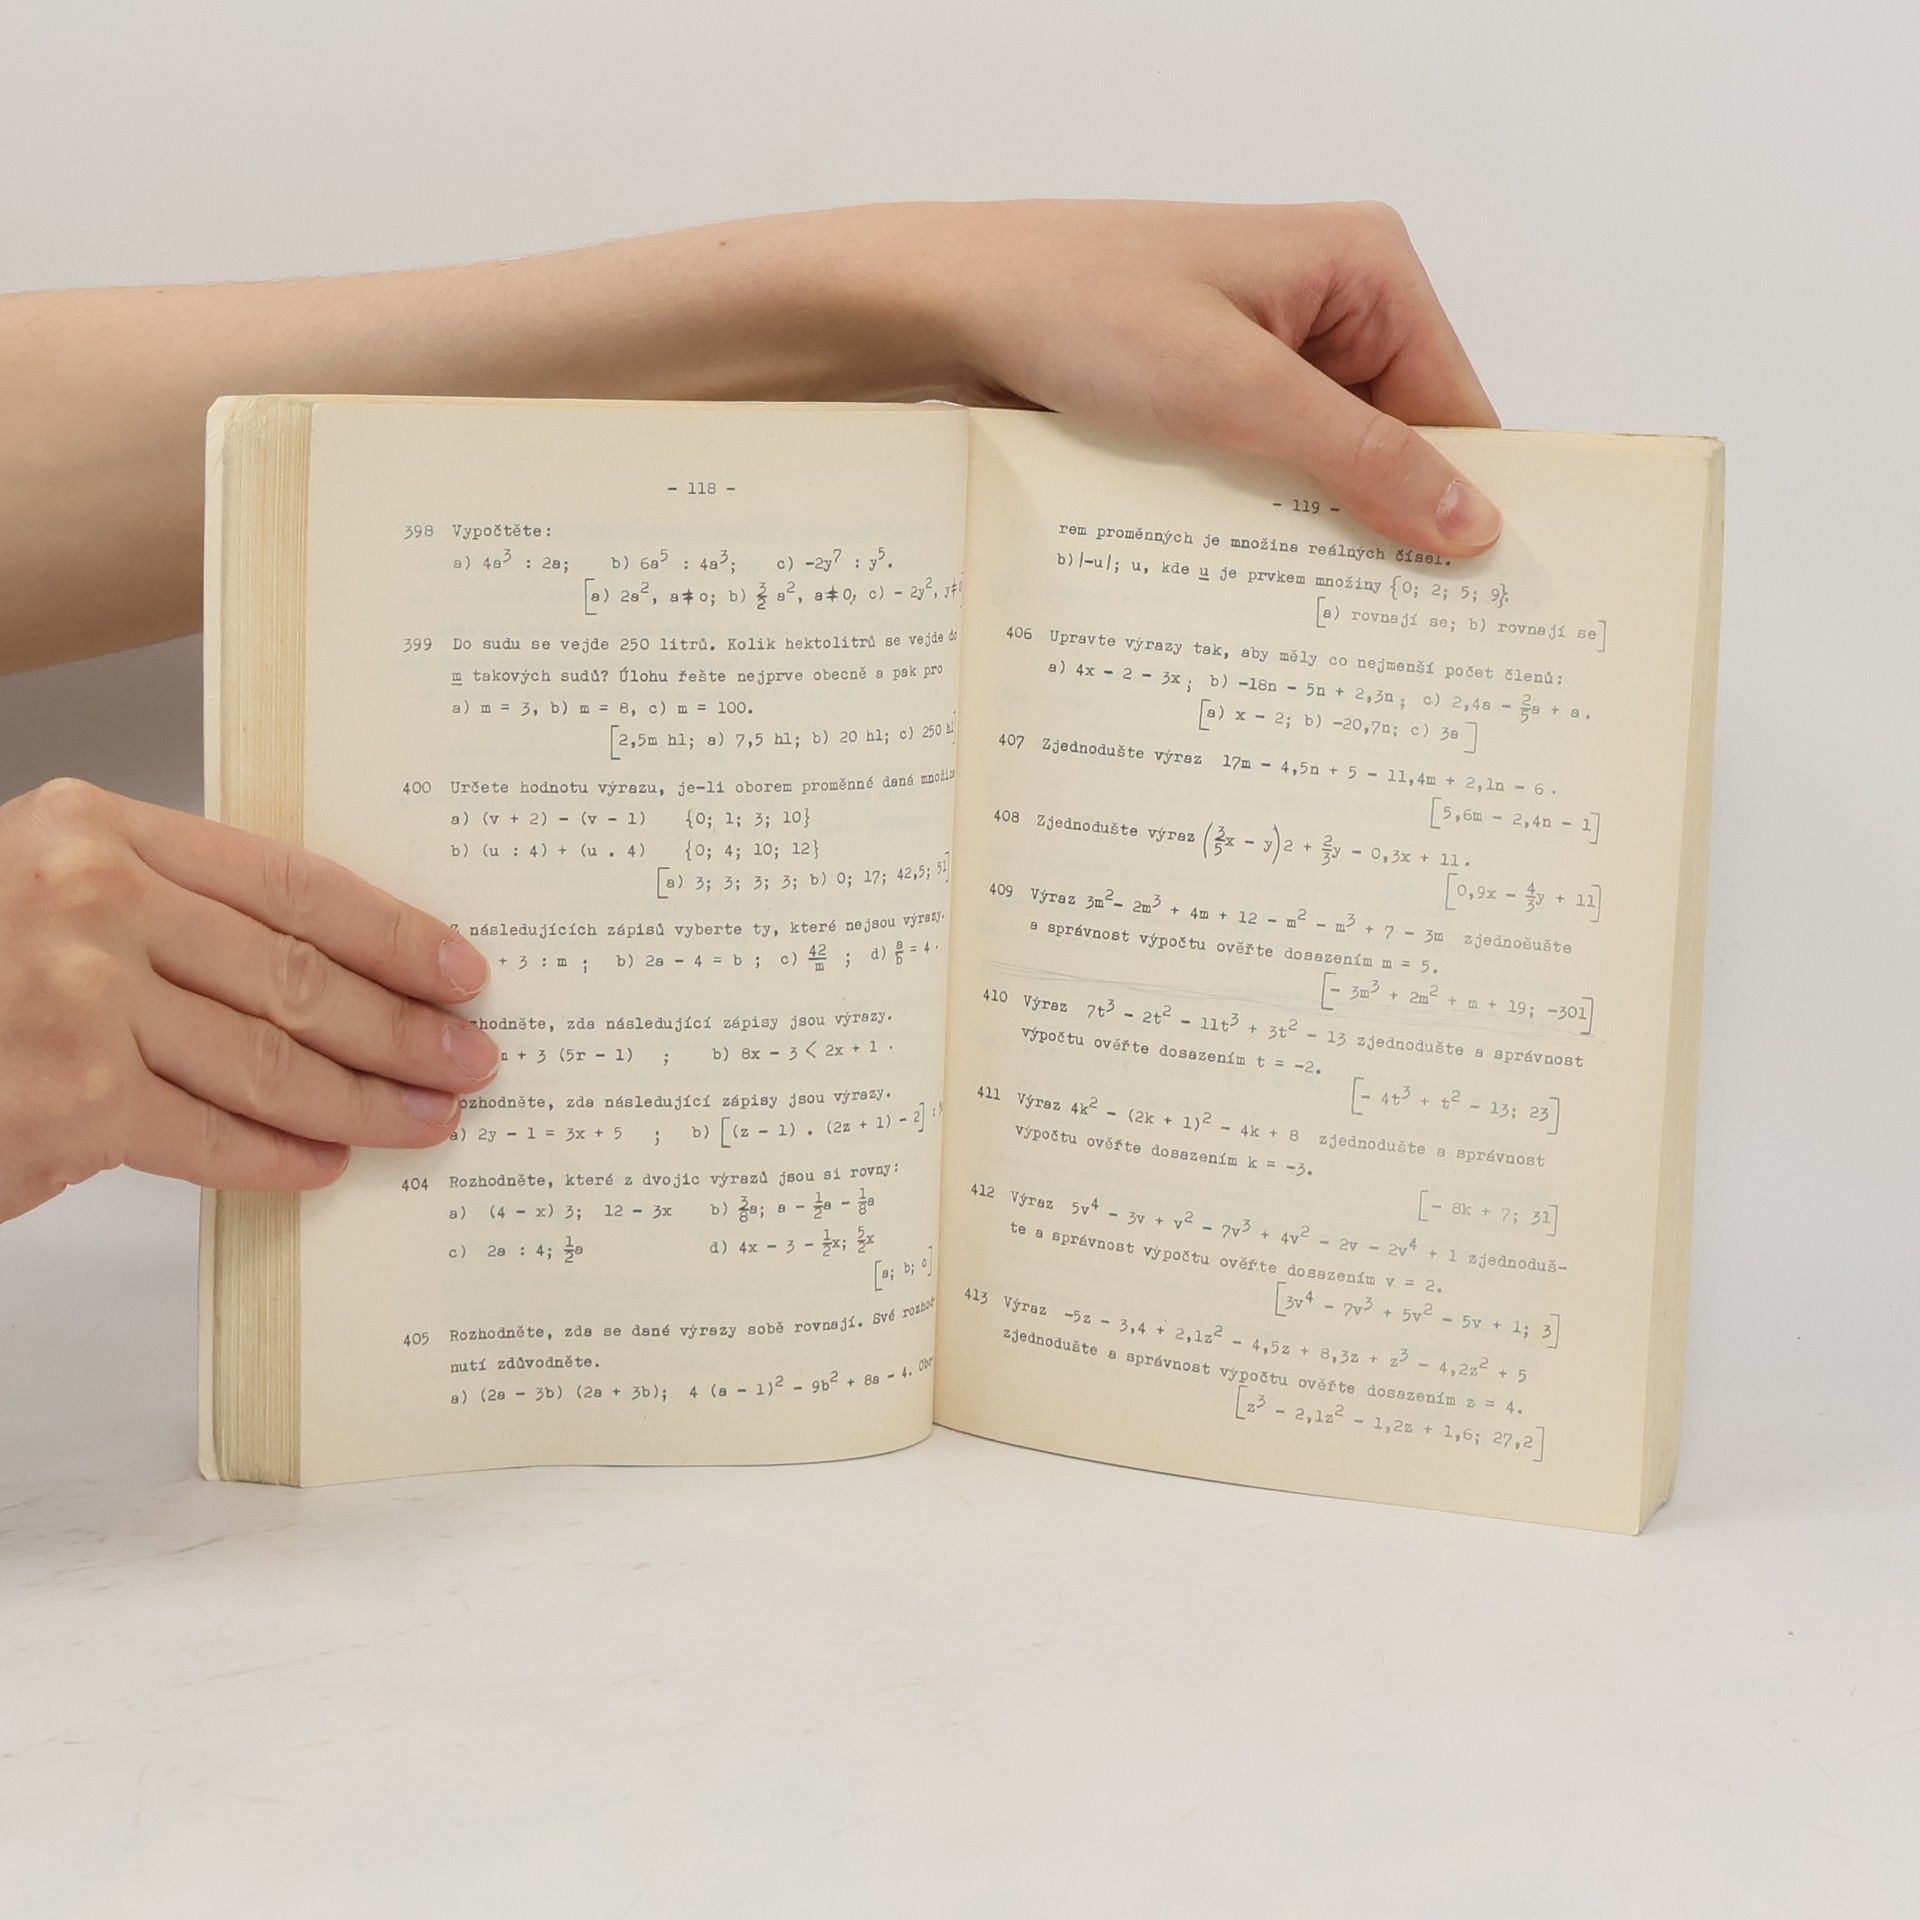 - 118 -
398 Vypočtěte:
a) 4a³ : 2a; b) 6a⁵ : 4a³; c) -2y⁷ : y⁵.
[a) 2a², a≠o; b) 3/2 a², a≠0, c) - 2y², y≠
399 Do sudu se vejde 250 litrů. Kolik hektolitrů se vejde do
m takových sudů? Úlohu řešte nejprve obecně a pak pro
a) m = 3, b) m = 8, c) m = 100.
[2,5m hl; a) 7,5 hl; b) 20 hl; c) 250 hl]
400 Určete hodnotu výrazu, je-li oborem proměnné daná
a) (v + 2) - (v - 1) {0; 1; 3; 10}
b) (u : 4) + (u . 4) {0; 4; 10; 12}
[a) 3; 3; 3; 3; b) 0; 17; 42,5; 51]
následujících zápisů vyberte ty, které nejsou výrazy.
+ 3 : m ; b) 2a - 4 = b ; c) 42/m ; d) a/b = 4 .
zda následující zápisy jsou výrazy.
+ 3 (5r - 1) ; b) 8x - 3 < 2x + 1 .
zda následující zápisy jsou výrazy.
a) 2y - 1 = 3x + 5 ; b) [(z - 1) . (2z + 1) - 2] :
404 Rozhodněte, které z dvojic výrazů jsou si rovny:
a) (4 - x) 3; 12 - 3x b) 3/8a; a - 1/2a - 1/8a
c) 2a : 4; 1/2a d) 4x - 3 - 1/2x; 5/2x
[a; b; c]
405 Rozhodněte, zda se dané výrazy sobě rovnají. Své rozhod-
nutí zdůvodněte.
a) (2a - 3b) (2a + 3b); 4 (a - 1)² - 9b² + 8a - 4. Obo-
- 119 -
rem proměnných je množina reálných čísel.
b) |-u|; u, kde u je prvkem množiny {0; 2; 5; 9}.
[a) rovnají se; b) rovnají se]
406 Upravte výrazy tak, aby měly co nejmenší počet členů:
a) 4x - 2 - 3x; b) -18n - 5n + 2,3n; c) 2,4a - 2/5a + a.
[a) x - 2; b) -20,7n; c) 3a]
407 Zjednodušte výraz 17m - 4,5n + 5 - 11,4m + 2,1n - 6 .
[5,6m - 2,4n - 1]
408 Zjednodušte výraz (3/5x - y)2 + 2/3y - 0,3x + 11.
[0,9x - 4/3y + 11]
409 Výraz 3m² - 2m³ + 4m + 12 - m² - m³ + 7 - 3m zjednošušte
a správnost výpočtu ověřte dosazením m = 5.
[- 3m³ + 2m² + m + 19; -301]
410 Výraz 7t³ - 2t² - 11t³ + 3t² - 13 zjednodušte a správnost
výpočtu ověřte dosazením t = -2.
[- 4t³ + t² - 13; 23]
411 Výraz 4k² - (2k + 1)² - 4k + 8 zjednodušte a správnost
výpočtu ověřte dosazením k = -3.
[- 8k + 7; 31]
412 Výraz 5v⁴ - 3v + v² - 7v³ + 4v² - 2v - 2v⁴ + 1 zjednoduš-
te a správnost výpočtu ověřte dosazením v = 2.
[3v⁴ - 7v³ + 5v² - 5v + 1; 3]
413 Výraz -5z - 3,4 + 2,1z² - 4,5z + 8,3z + z³ - 4,2z² + 5
zjednodušte a správnost výpočtu ověřte dosazením z = 4.
[z³ - 2,1z² - 1,2z + 1,6; 27,2]